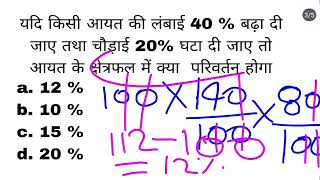 यदि किसी आयत की लंबाई 40 % बढ़ा दी
जाए तथा चौड़ाई 20% घटा दी जाए तो
आयत के क्षेत्रफल में क्या परिवर्तन होगा
a. 12 %
b. 10 %
c. 15 %
d. 20 %
100 × 140/100 × 80/100
112 - 100
= 12%
3/5